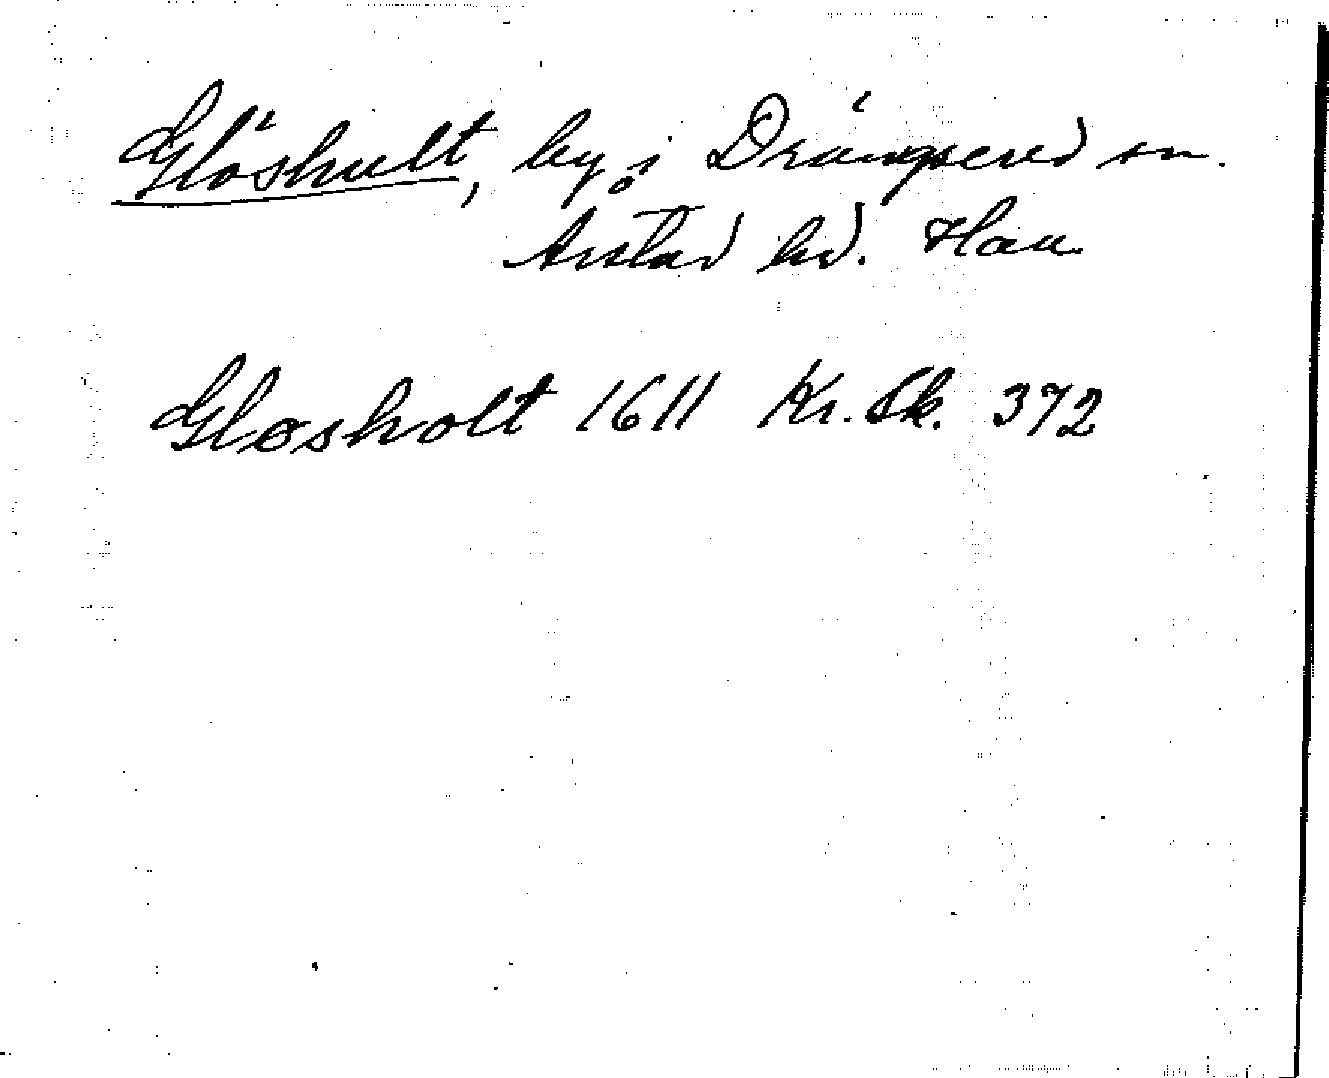 Glöshult, by i Drängsered sn.
Årstad hd. Hall
Glosholt 1611 Kr. Sk. 372